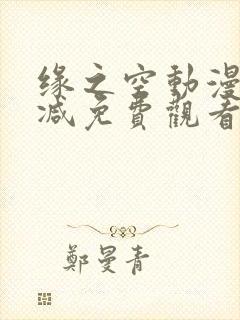 缘之空動漫
减免費觀看
鄭曼青